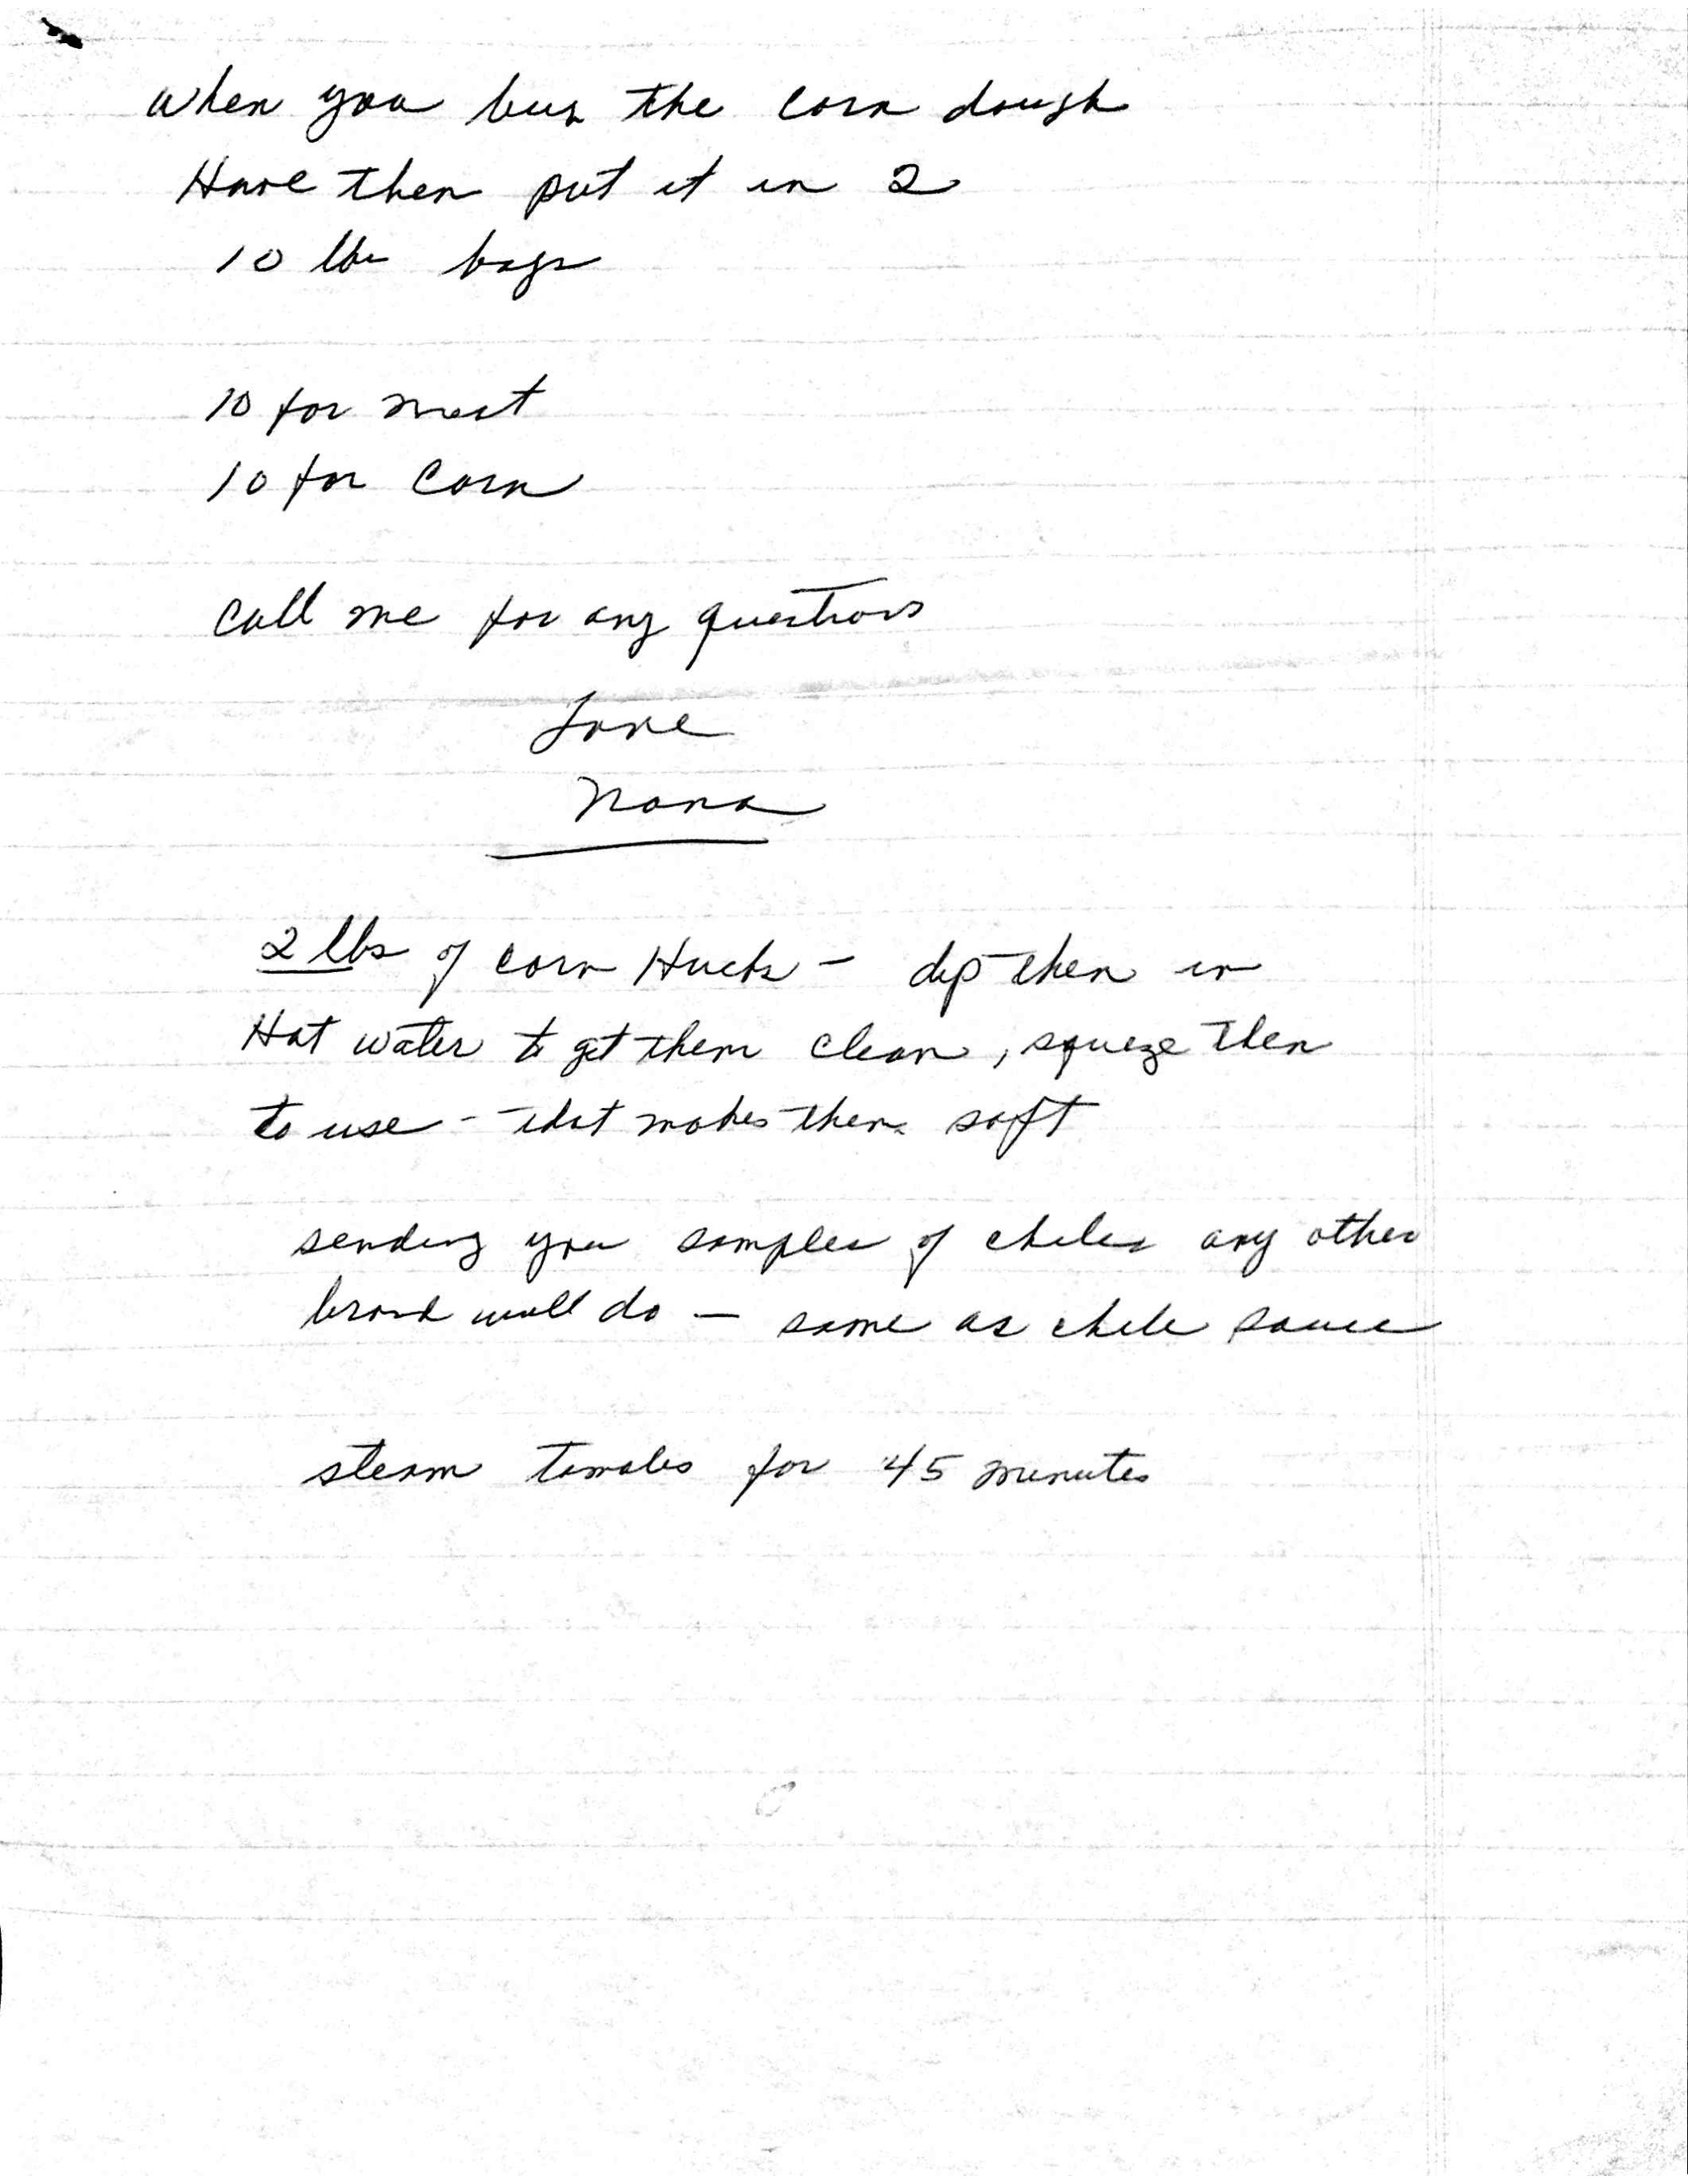 when you buy the corn dough
Have them put it in 2
10 lbs bags
10 for meat
10 for corn
call me for any questions
Love
Nana
2 lbs of corn Husks - dip them in
Hot water to get them clean, squeze them
to use - that makes them soft
sending you samples of chiles any other
brand will do - same as chile sauce
steam tamales for 45 minutes